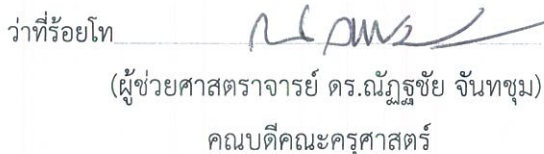 ว่าที่ร้อยโท
(ผู้ช่วยศาสตราจารย์ ดร.ณัฏฐชัย จันทชุม)
คณบดีคณะครุศาสตร์